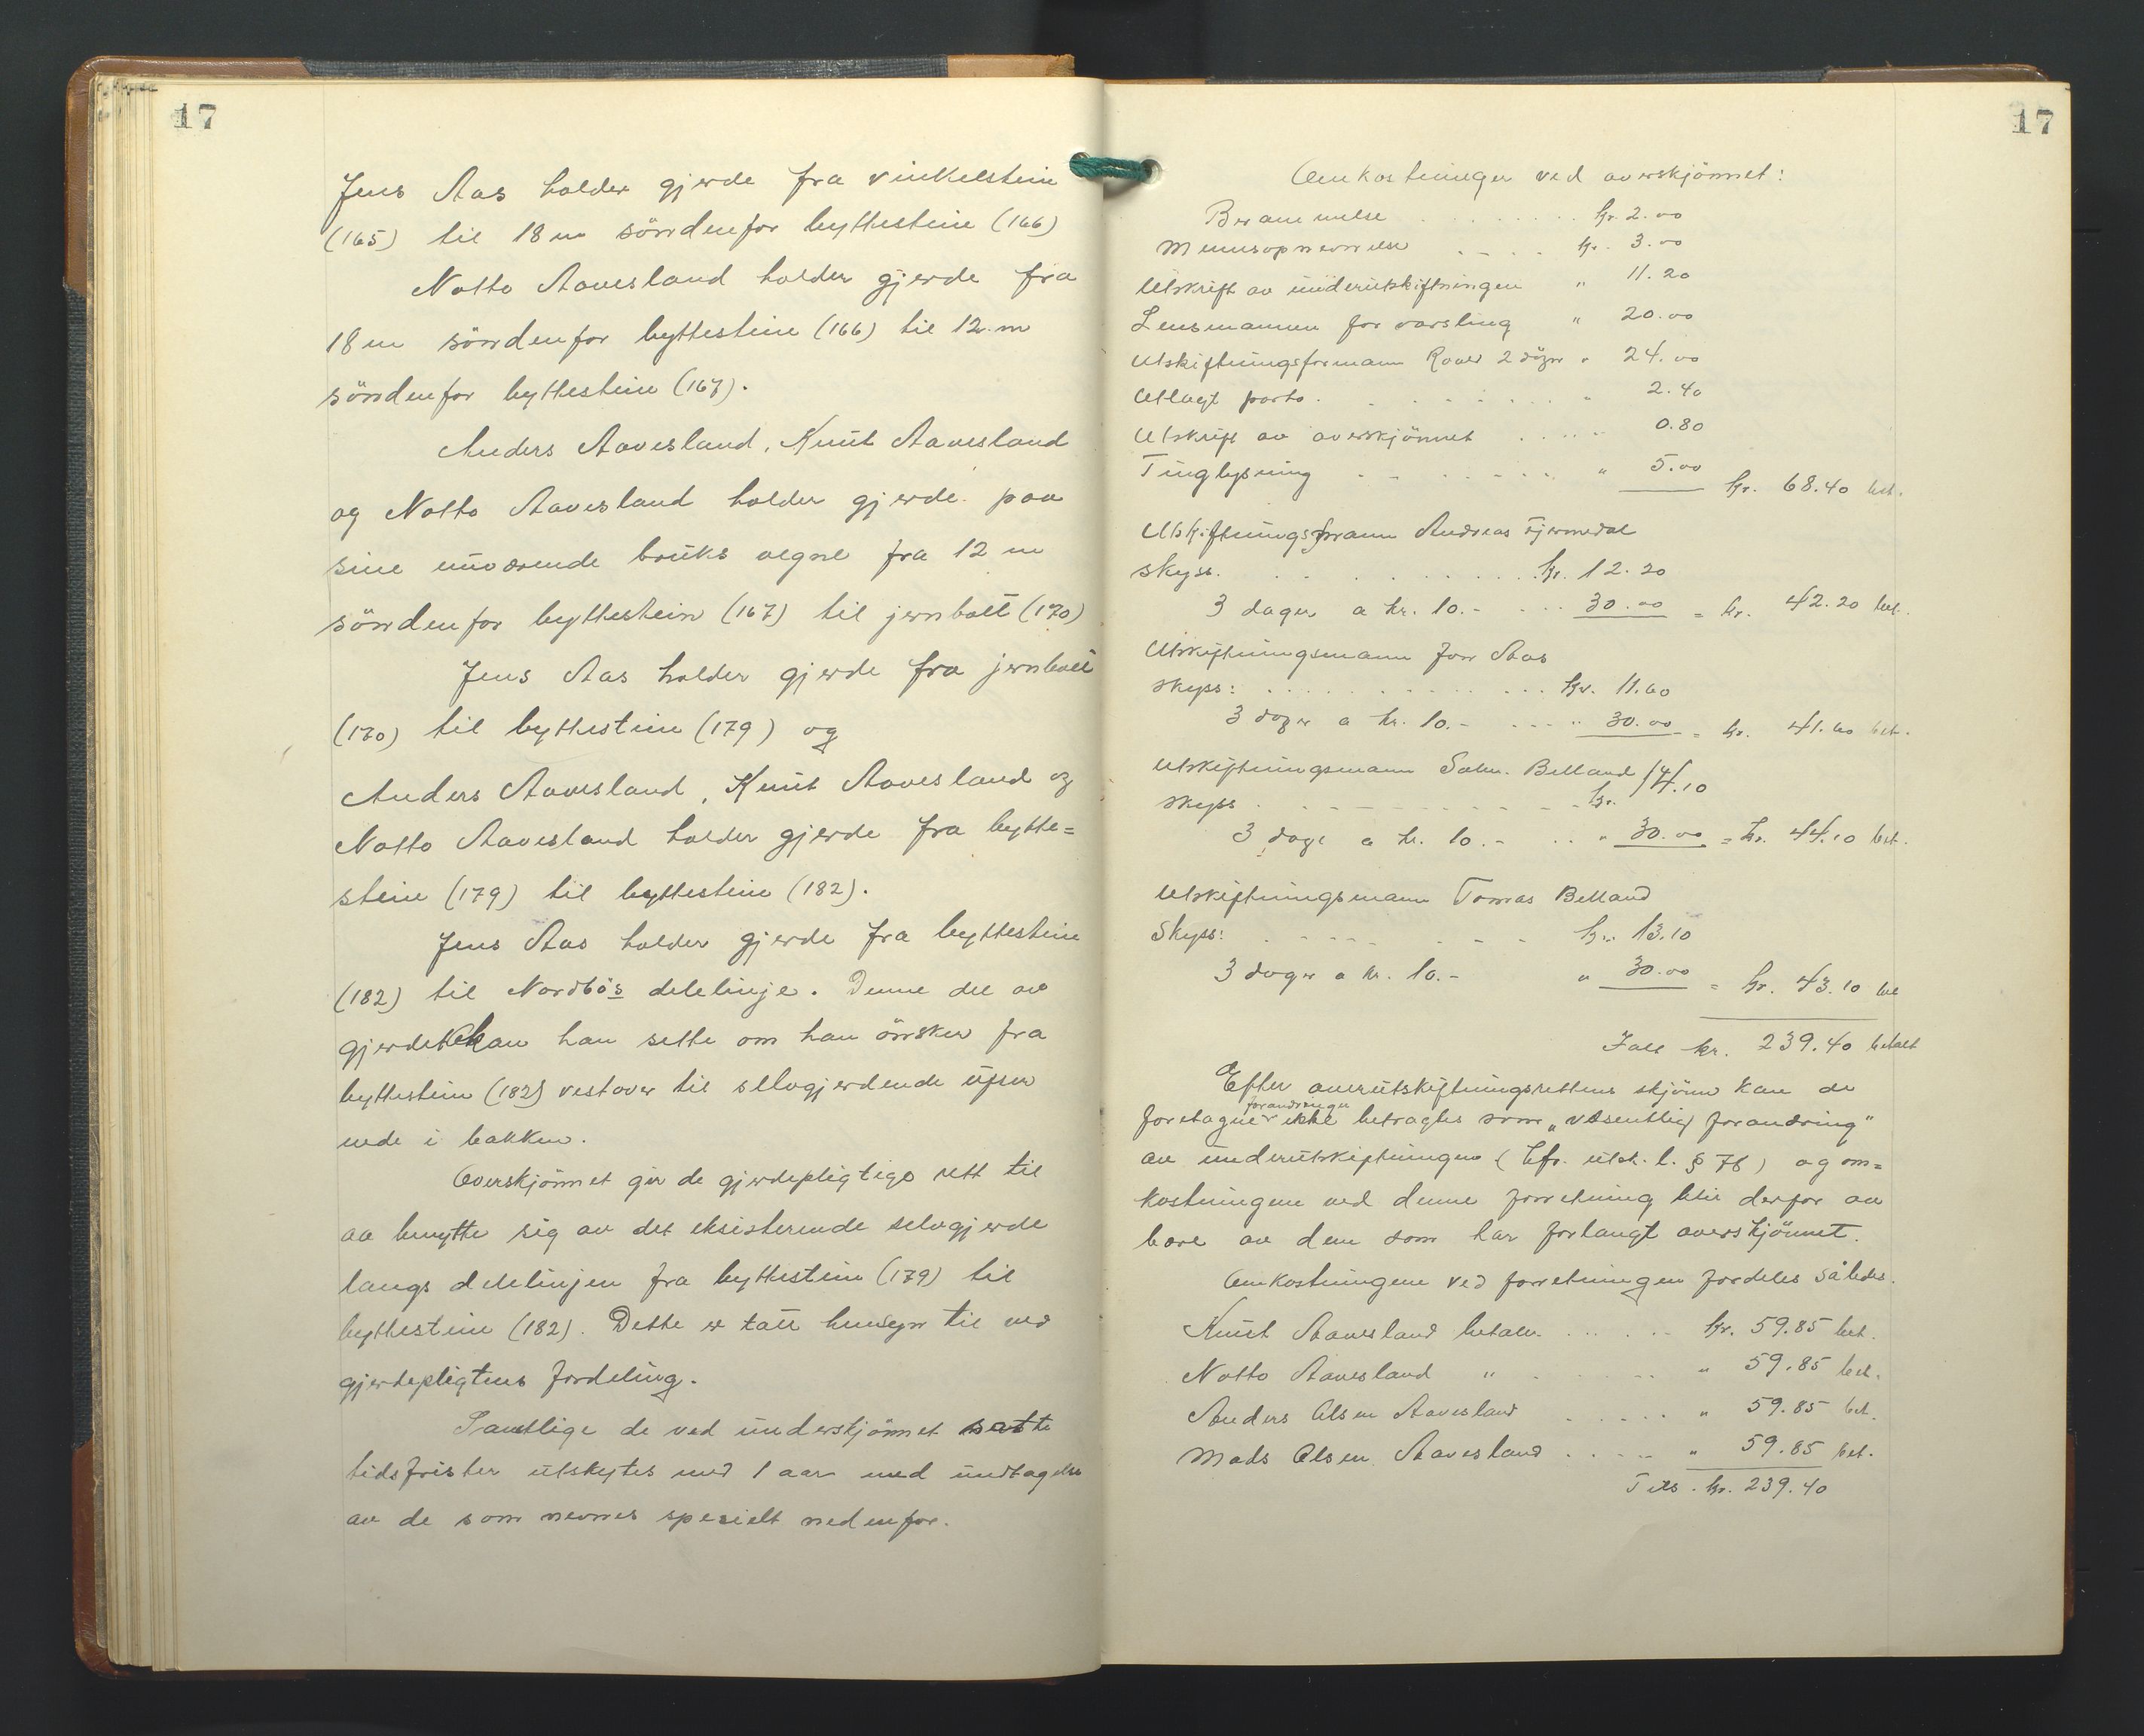 17
Jens Aas holder gjerde fra vinkelstein
(165) til 18 m sönndenfor byttestein (166)
Notto Aavesland holder gjerde fra
18 m sönndenfor byttestein (166) til 12 m
sönndenfor byttestein (167).
Anders Aavesland, Knut Aavesland
og Notto Aavesland holder gjerde paa
sine nuværende bruks vegne fra 12 m
sönndenfor byttestein (167) til jernbolt (170)
Jens Aas holder gjerde fra jernbolt
(170) til byttestein (179) og
Anders Aavesland, Knut Aavesland og
Notto Aavesland holder gjerde fra bytte=
stein (179) til byttestein (182).
Jens Aas holder gjerde fra byttestein
(182) til Nordbös delelinje. Denne del av
gjerdet kan han sette om han önsker fra
byttestein (182) vestover til selvgjerdende ufser
nede i bakken.
Overskjönnet gir de gjerdepligtige rett til
aa benytte sig av det eksisterende selvgjerde
langs delelinjen fra byttestein (179) til
byttestein (182). Dette er tatt hensyn til ved
gjerdepligtens fordeling.
Samtlige de ved underskjönnet satte
tidsfrister utskytes med 1 aar med undtagelse
av de som nevnes spesielt nedenfor.
17
Omkostninger ved overskjönnet:
Berammelse . . . . . . . . kr. 2.00
Mennsopnevnelse . . . . kr. 3.00
Utskrift av underutskiftningen " 11.20
Lensmannen for varsling " 20.00
Utskiftningsformann 2 dögn " 24.00
Utlagt porto . . . . . . . . " 2.40
Utskrift av overskjönnet . . . . . 0.80
Tinglysning . . . . . . . " 5.00 kr. 68.40 bet.
Utskiftningsmann Andreas Tjernedal
Skyss. . . . . . . . . . . kr. 12.20
3 dager a kr. 10.- . . . 30.00 = kr. 42.20 bet.
Utskiftningsmann Aas
Skyss: . . . . . . . . . . . . kr. 11.60
3 dager a kr. 10.- . . . . " 30.00 = kr. 41.60 bet.
Utskiftningsmann Salm. Belland
Skyss . . . . . . . . . . . kr. 14.10
3 dage a kr. 10.- . . " 30.00 = kr. 44.10 bet.
Utskiftningsmann Tomas Belland
Skyss: . . . . . . . . kr. 13.10
3 dager a kr. 10.- " 30.00 = kr. 43.10 bet
Ialt kr. 239.40 betalt
Efter overutskiftningsrettens skjönn kan de
foretagne forandringer ikke betragtes som "væsentlig forandring"
av underutskiftningen (kfr. utsk. l. § 78) og om=
kostningene ved denne forretning blir derfor aa
bære av dem som har forlangt overskjönnet.
Omkostningene ved forretningen fordeles således.
Knut Aavesland betaler . . . . . . kr. 59.85 bet.
Notto Aavesland " . . . . . " 59.85 bet.
Anders Olsen Aavesland . . . . . " 59.85 bet.
Mads Olsen Aavesland . . . . . " 59.85 bet.
Tils. kr. 239.40